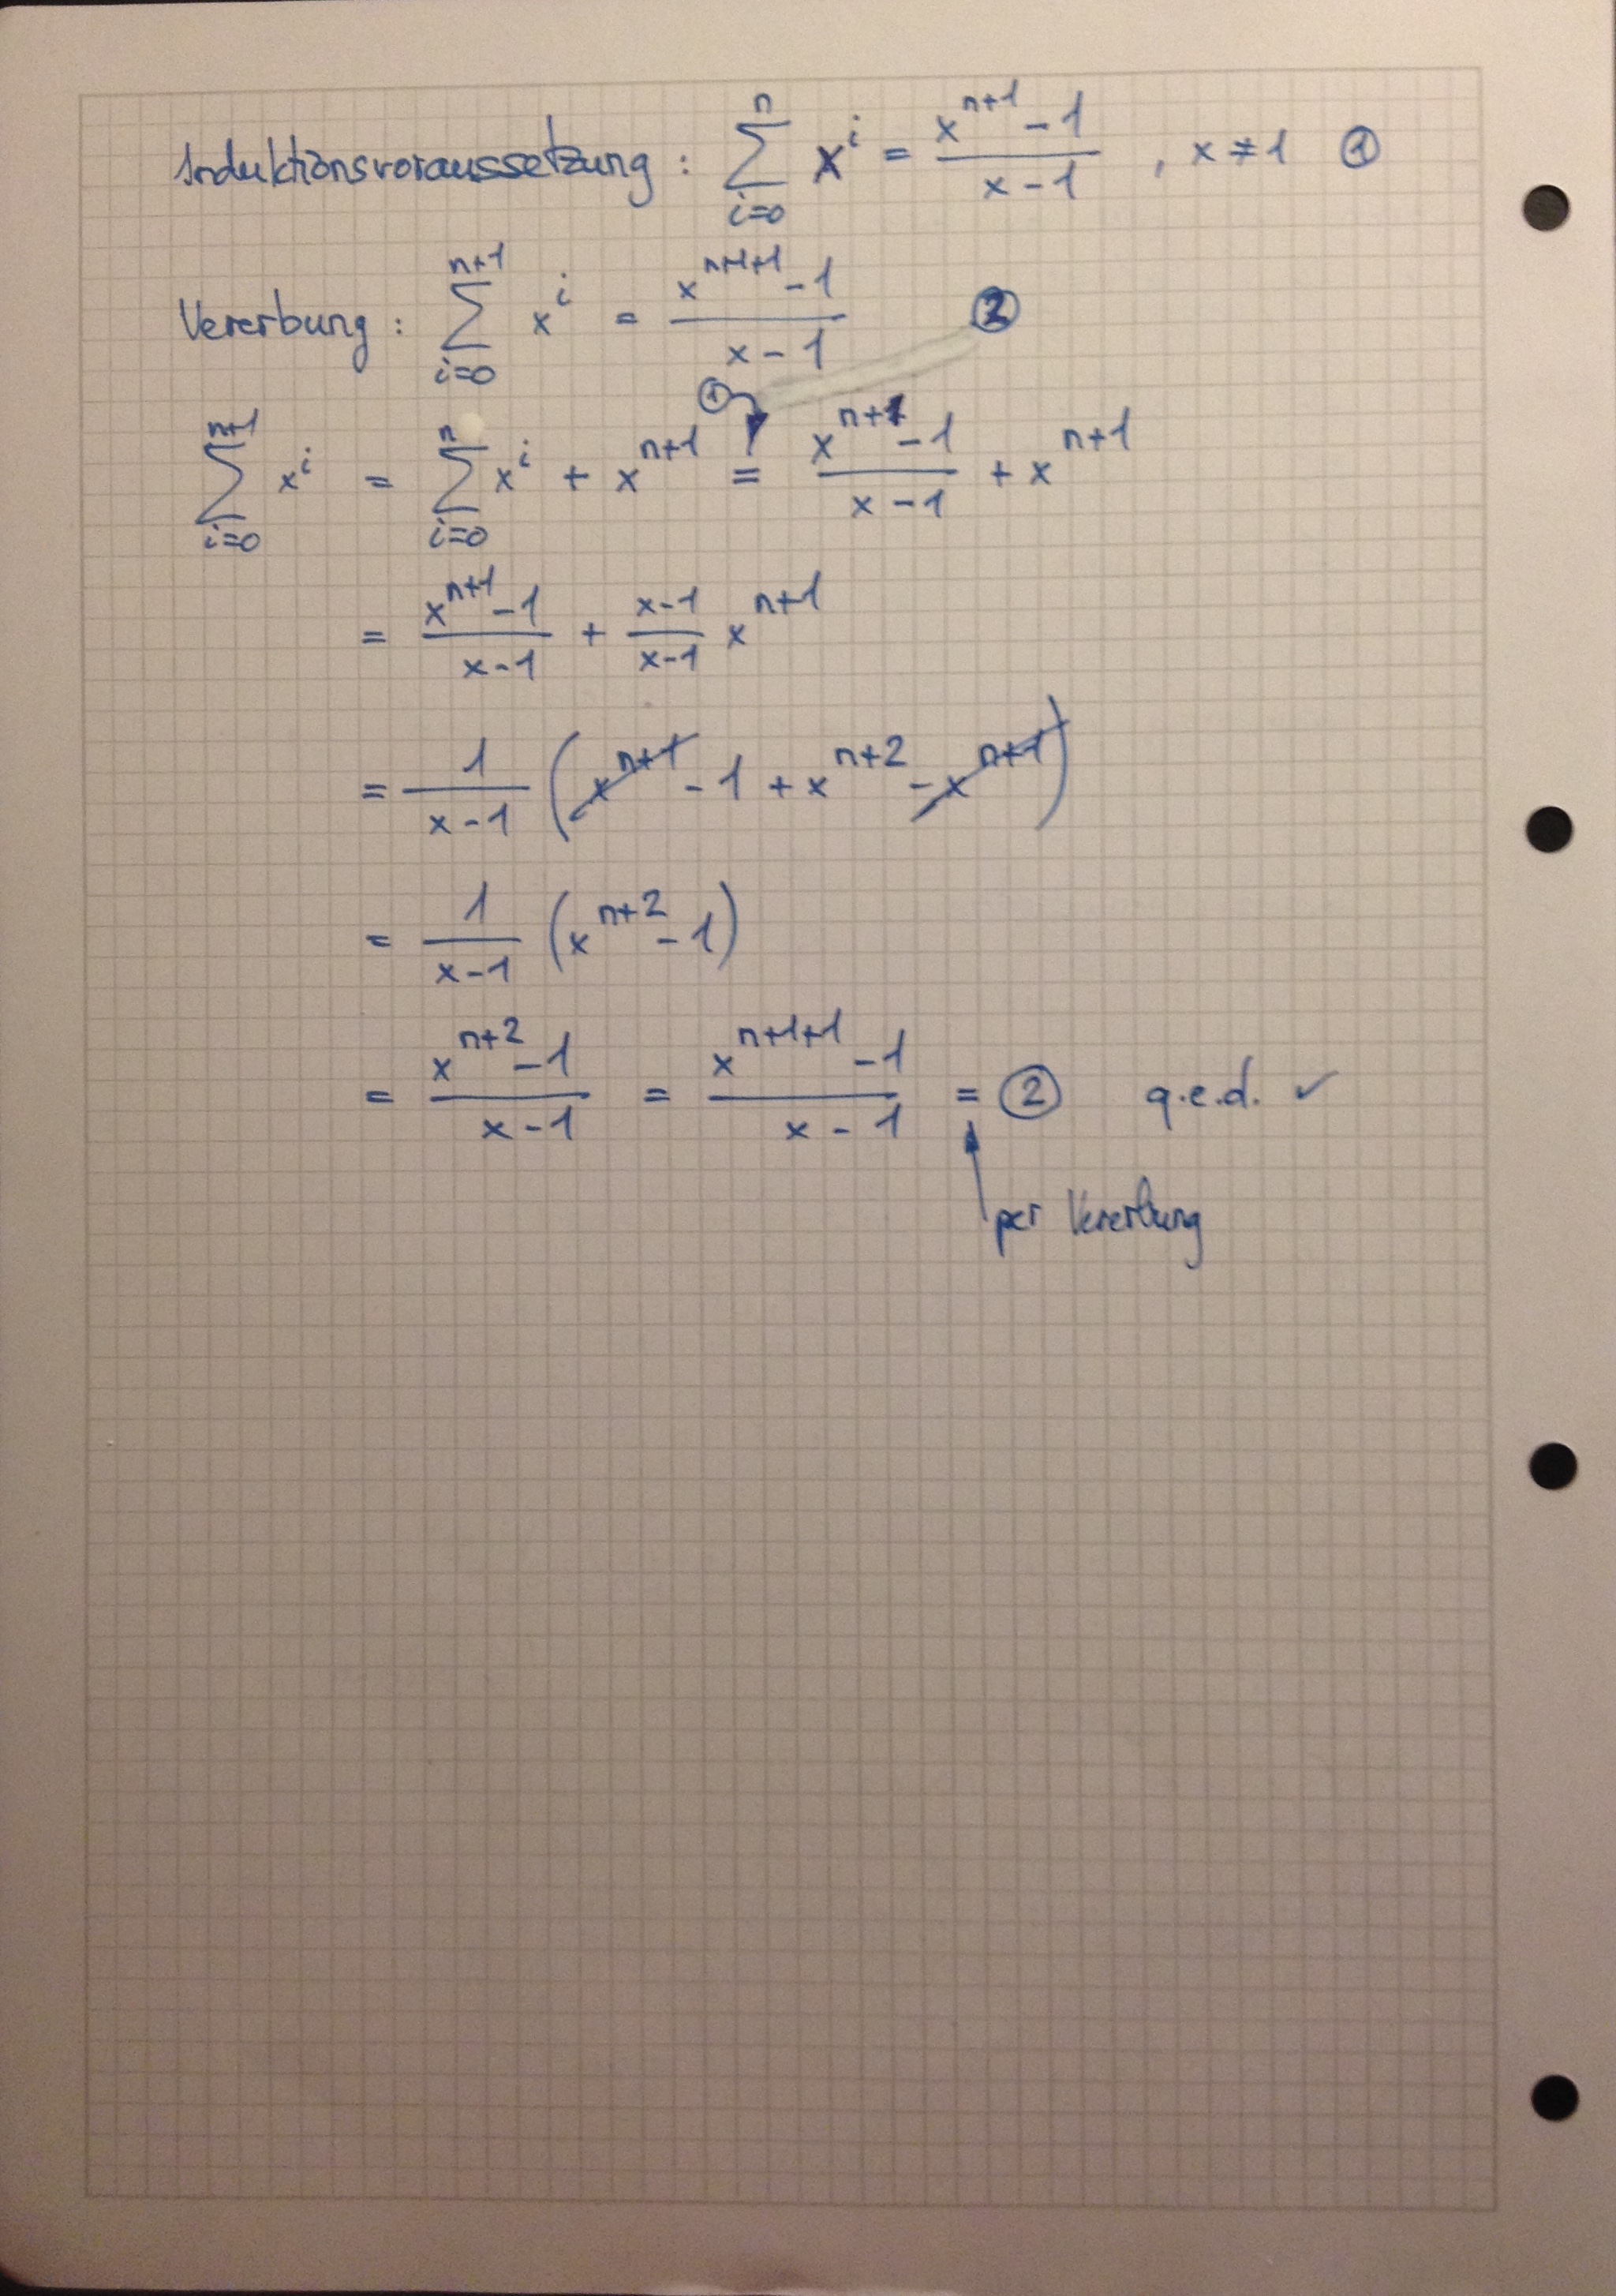 Induktionsvoraussetzung : ∑_{i=0}^{n} x^i = (x^{n+1} - 1)/(x - 1) , x ≠ 1 ①
Vererbung : ∑_{i=0}^{n+1} x^i = (x^{n+1+1} - 1)/(x - 1) ②
①
∑_{i=0}^{n+1} x^i = ∑_{i=0}^{n} x^i + x^{n+1} = (x^{n+1} - 1)/(x - 1) + x^{n+1}
= (x^{n+1} - 1)/(x - 1) + (x - 1)/(x - 1) x^{n+1}
= 1/(x - 1) (x^{n+1} - 1 + x^{n+2} - x^{n+1})
= 1/(x - 1) (x^{n+2} - 1)
= (x^{n+2} - 1)/(x - 1) = (x^{n+1+1} - 1)/(x - 1) = ② q.e.d. ✓
per Vererbung